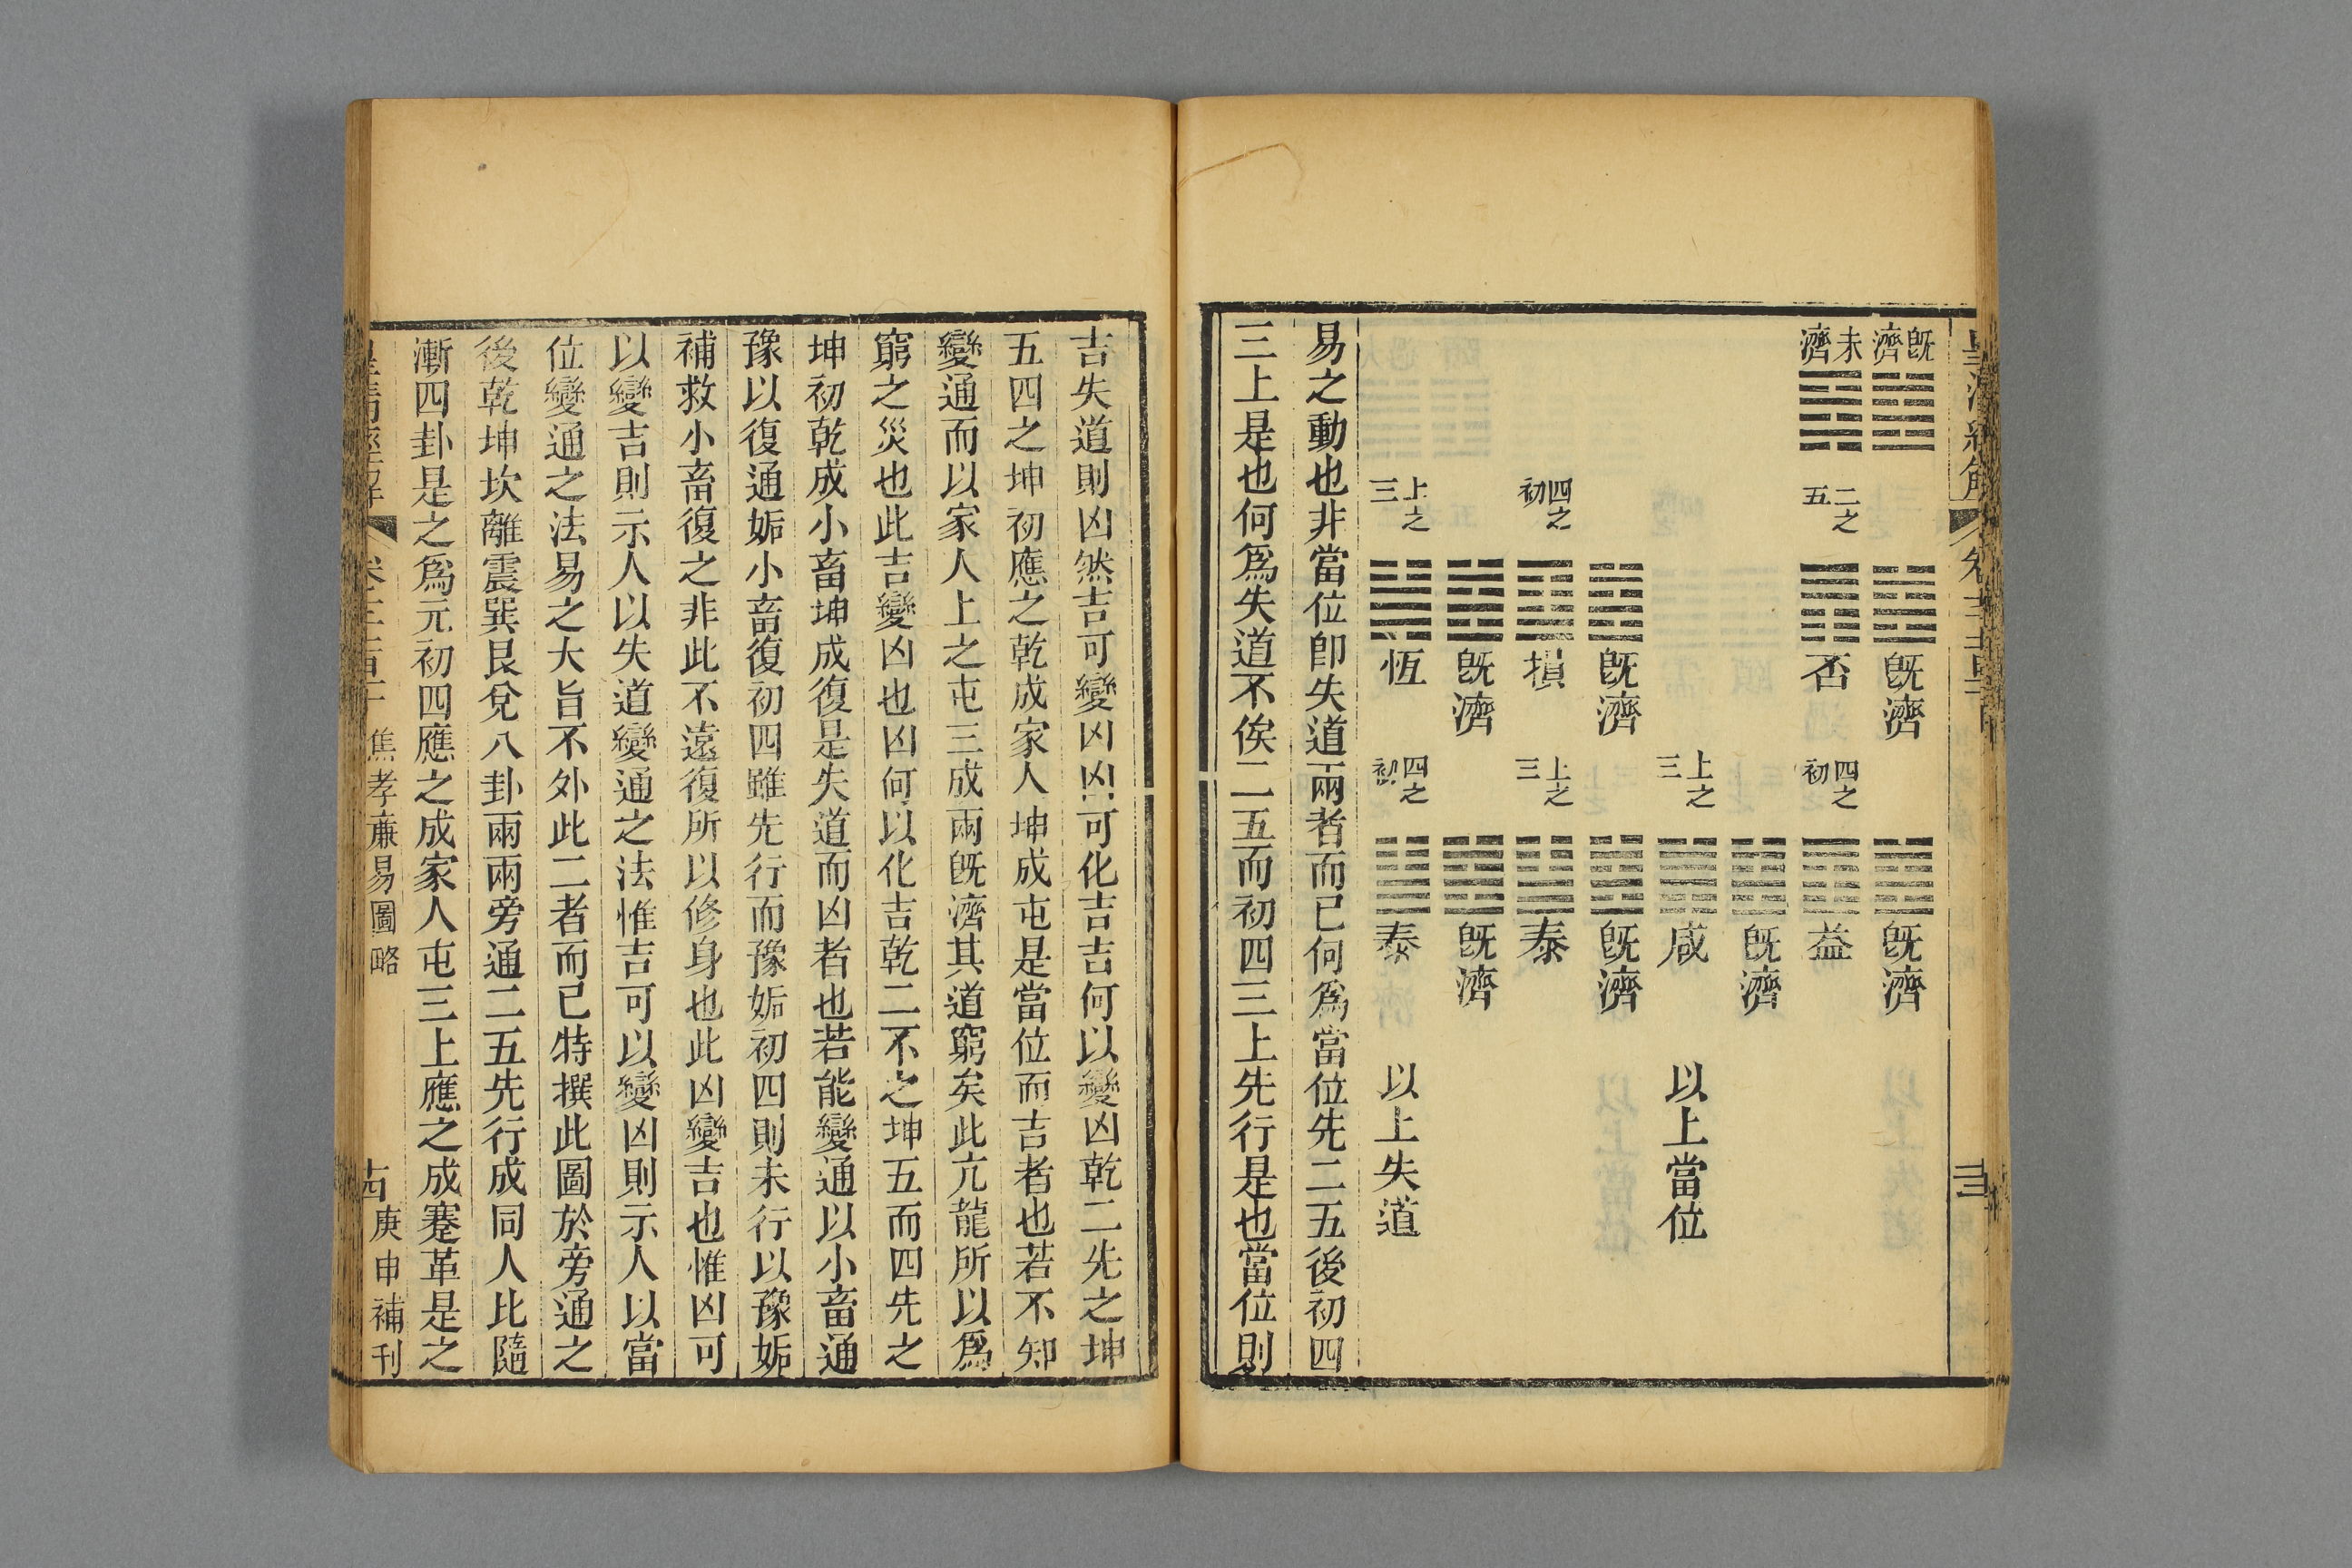 既濟
既濟
既濟
未濟
二之五
否
四之初
益
既濟
上之三
咸
以上當位
既濟
既濟
四之初
損
上之三
泰
既濟
既濟
上之三
恆
四之初
泰
以上失道
易之動也非當位卽失道兩者而已何爲當位先二五後初四
三上是也何爲失道不俟二五而初四三上先行是也當位則
吉失道則凶然吉可變凶凶可化吉吉何以變凶乾二先之坤
五四之坤初應之乾成家人坤成屯是當位而吉者也若不知
變通而以家人上之屯三成兩既濟其道窮矣此亢龍所以爲
窮之災也此吉變凶也凶何以化吉乾二不之坤五而四先之
坤初乾成小畜坤成復是失道而凶者也若能變通以小畜通
豫以復通姤小畜復初四雖先行而豫姤初四則未行以豫姤
補救小畜復之非此不遠復所以修身也此凶變吉也惟凶可
以變吉則示人以失道變通之法惟吉可以變凶則示人以當
位變通之法易之大旨不外此二者而已特撰此圖於旁通之
後乾坤坎離震巽艮兌八卦兩兩旁通二五先行成同人比隨
漸四卦是之爲元初四應之成家人屯三上應之成蹇革是之
焦孝廉易圖略
庚申補刊